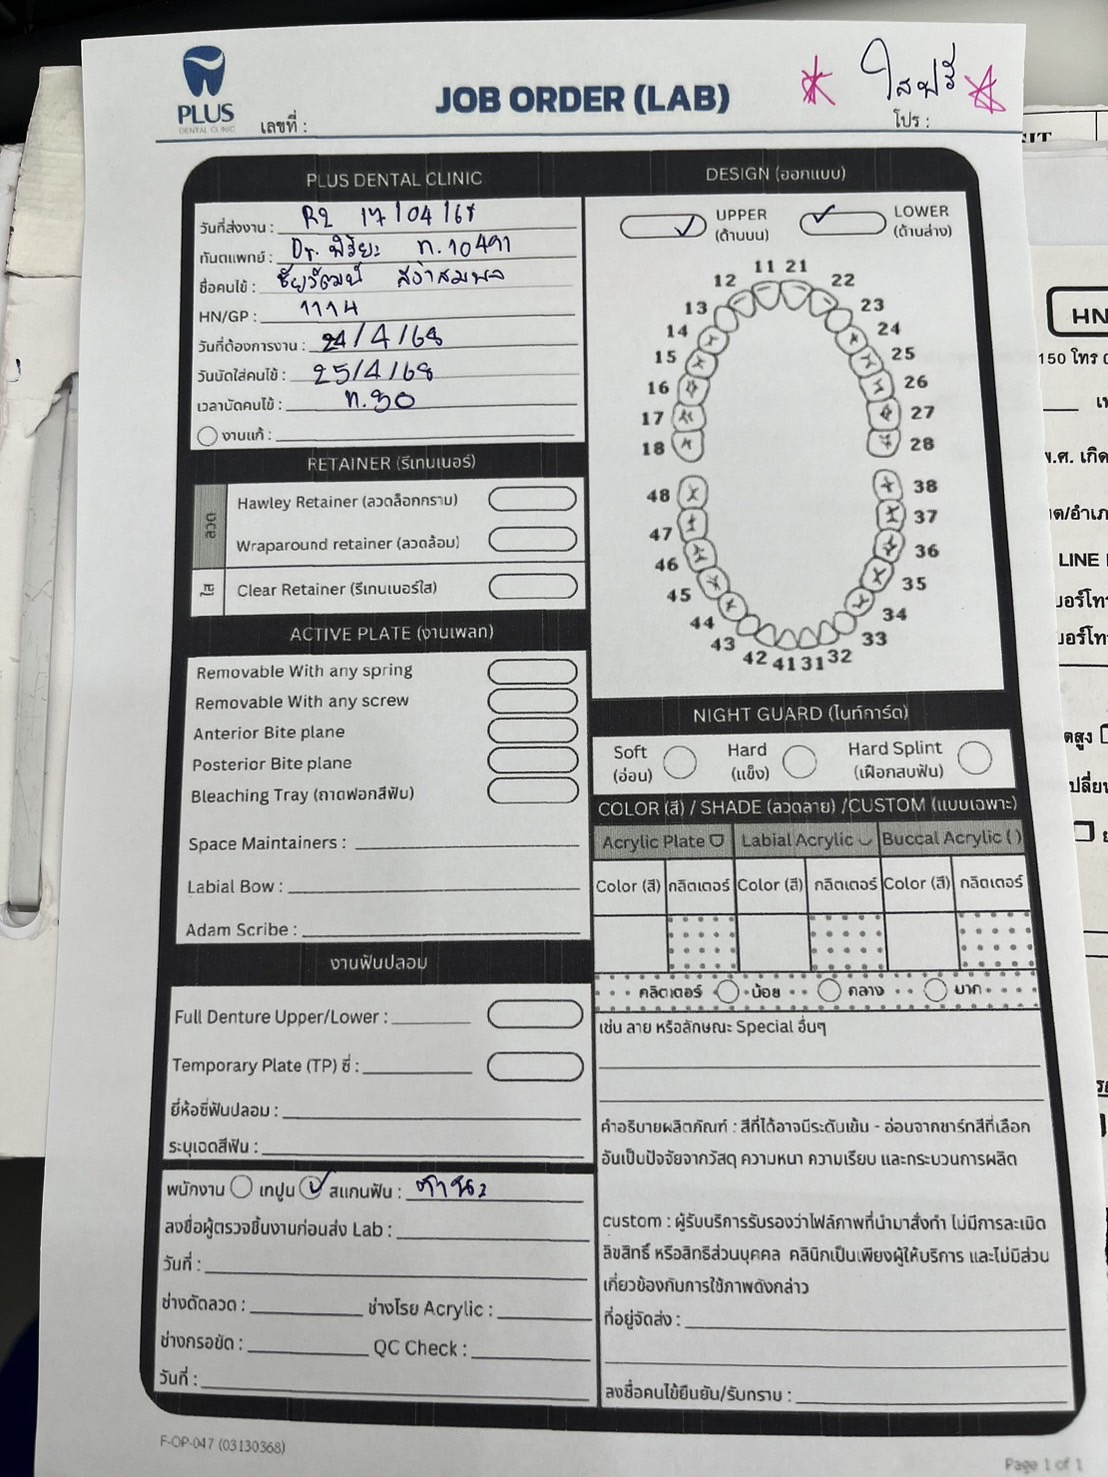 PLUS
DENTAL CLINIC
เลขที่ :
JOB ORDER (LAB)
ใสฟรี
โปร :
PLUS DENTAL CLINIC
วันที่ส่งงาน : R2 17/04/68
ทันตแพทย์ : Dr. พิริยะ ท.10491
ชื่อคนไข้ : ชัยวัฒน์
HN/GP : 1114
วันที่ต้องการงาน : 24/4/68
วันนัดใส่คนไข้ : 25/4/68
เวลานัดคนไข้ : 17.30
งานแก้ :
RETAINER (รีเทนเนอร์)
ลวด
Hawley Retainer (ลวดล็อกกราม)
Wraparound retainer (ลวดล้อม)
ใส
Clear Retainer (รีเทนเนอร์ใส)
ACTIVE PLATE (งานเพลท)
Removable With any spring
Removable With any screw
Anterior Bite plane
Posterior Bite plane
Bleaching Tray (ถาดฟอกสีฟัน)
Space Maintainers :
Labial Bow :
Adam Scribe :
งานฟันปลอม
Full Denture Upper/Lower :
Temporary Plate (TP) ซี่ :
ยี่ห้อซี่ฟันปลอม :
ระบุเฉดสีฟัน :
พนักงาน เทปูน สแกนฟัน :
ลงชื่อผู้ตรวจชิ้นงานก่อนส่ง Lab :
วันที่ :
ช่างดัดลวด : ช่างโรย Acrylic :
ช่างกรอขัด : QC Check :
วันที่ :
DESIGN (ออกแบบ)
UPPER
(ด้านบน)
LOWER
(ด้านล่าง)
11 21
12 22
13 23
14 24
15 25
16 26
17 27
18 28
48 38
47 37
46 36
45 35
44 34
43 33
42 41 31 32
NIGHT GUARD (ไนท์การ์ด)
Soft
(อ่อน)
Hard
(แข็ง)
Hard Splint
(เฝือกสบฟัน)
COLOR (สี) / SHADE (ลวดลาย) /CUSTOM (แบบเฉพาะ)
Acrylic Plate Labial Acrylic Buccal Acrylic ( )
Color (สี) กลิตเตอร์ Color (สี) กลิตเตอร์ Color (สี) กลิตเตอร์
กลิตเตอร์ น้อย กลาง มาก
เช่น ลาย หรือลักษณะ Special อื่นๆ
คำอธิบายผลิตภัณฑ์ : สีที่ได้อาจมีระดับเข้ม - อ่อนจากชาร์ทสีที่เลือก
อันเป็นปัจจัยจากวัสดุ ความหนา ความเรียบ และกระบวนการผลิต
custom : ผู้รับบริการรับรองว่าไฟล์ภาพที่นำมาสั่งทำ ไม่มีการละเมิด
ลิขสิทธิ์ หรือสิทธิส่วนบุคคล คลินิกเป็นเพียงผู้ให้บริการ และไม่มีส่วน
เกี่ยวข้องกับการใช้ภาพดังกล่าว
ที่อยู่จัดส่ง :
ลงชื่อคนไข้ยืนยัน/รับทราบ :
F-OP-047 (03130368)
Page 1 of 1
HN
150 โทร
พ.ศ. เกิด
LINE